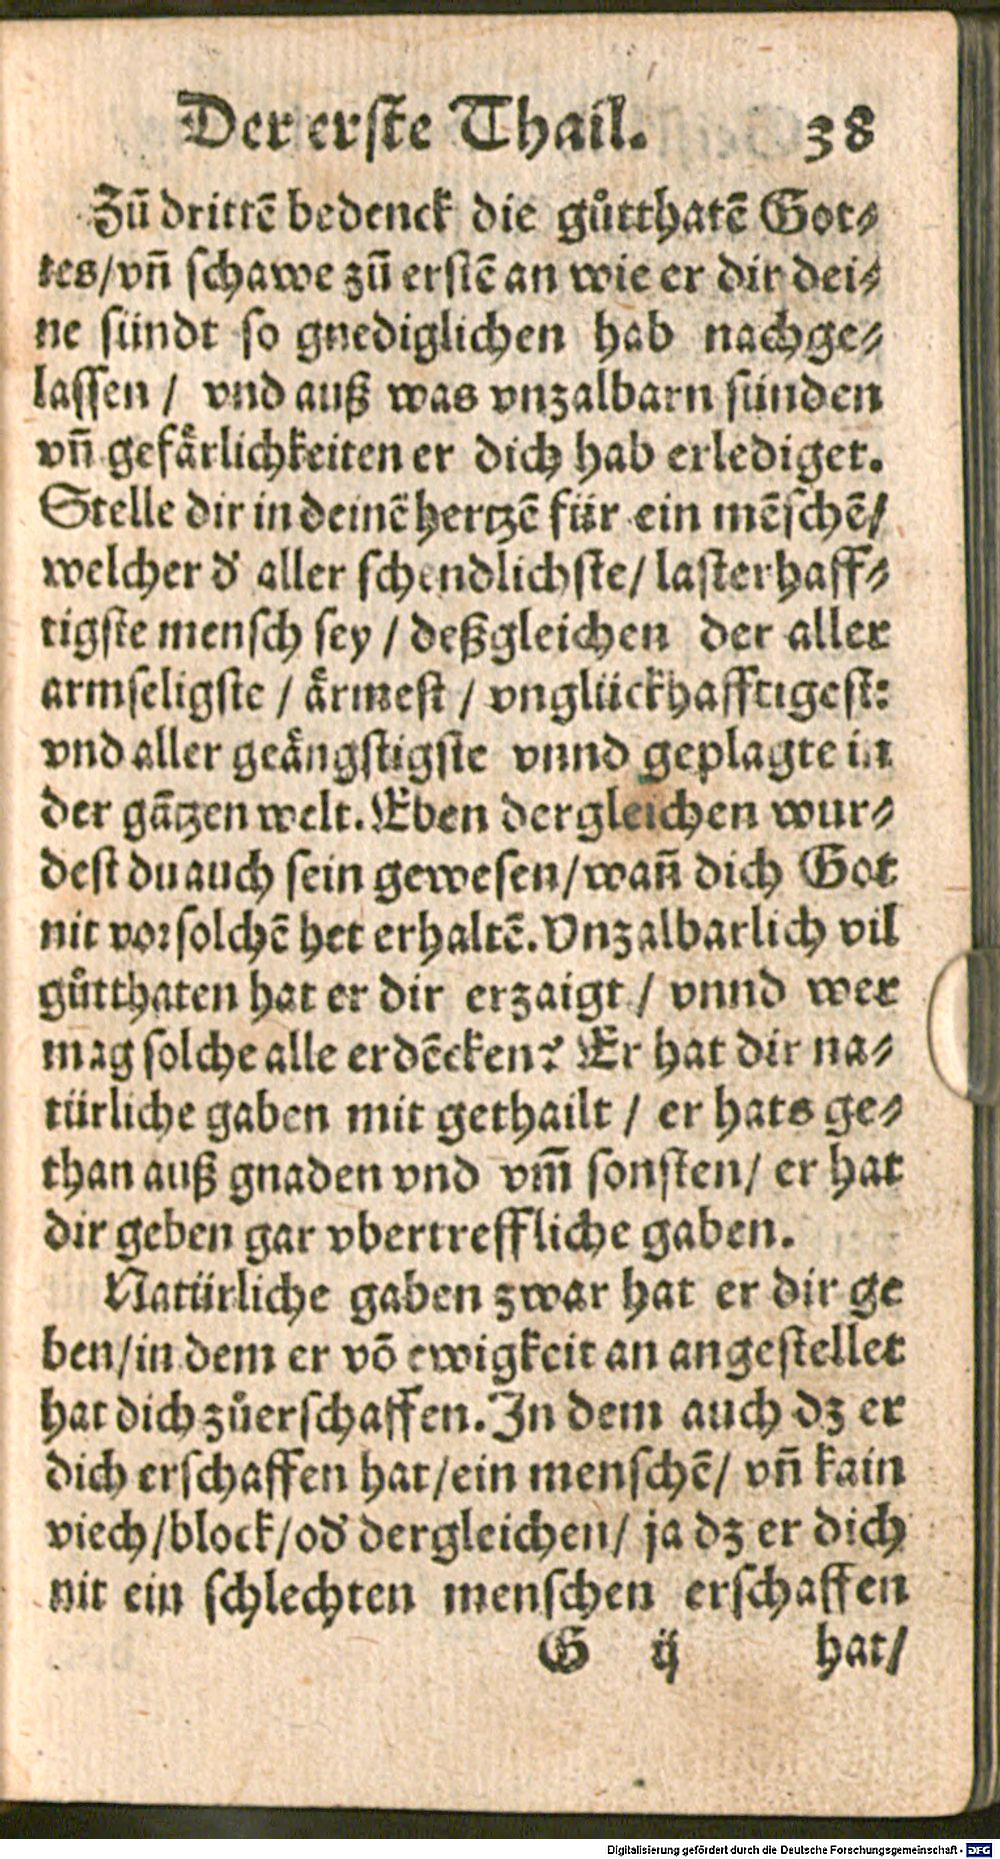 Der erste Thail. 38
Zũ drittẽ bedenck die gůtthatẽ Got⸗
tes/vñ schawe zũ erstẽ an wie er dir dei⸗
ne sündt so gnediglichen hab nachge⸗
lassen / vnd auß was vnzalbarn sünden
vñ gefårlichkeiten er dich hab erlediget.
Stelle dir in deinẽ hertzẽ für ein mẽschẽ/
welcher d' aller schendlichste/ lasterhaff⸗
tigste mensch sey / deßgleichen der aller
armseligste / årmest / vnglückhafftigest:
vnd aller geångstigste vnnd geplagte in
der gãtzen welt. Eben dergleichen wur⸗
dest du auch sein gewesen/wañ dich Got
nit vor solchẽ het erhaltẽ. Vnzalbarlich vil
gůtthaten hat er dir erzaigt / vnnd wer
mag solche alle erdẽcken? Er hat dir na⸗
türliche gaben mit gethailt / er hats ge⸗
than auß gnaden vnd vm̃ sonsten/ er hat
dir geben gar vbertreffliche gaben.
Natürliche gaben zwar hat er dir ge
ben/in dem er võ ewigkeit an angestellet
hat dich zůerschaffen. In dem auch dz er
dich erschaffen hat/ein menschẽ/ vñ kain
viech/block/od' dergleichen/ ja dz er dich
nit ein schlechten menschen erschaffen
G ij hat/
Digitalisierung gefördert durch die Deutsche Forschungsgemeinschaft - DFG